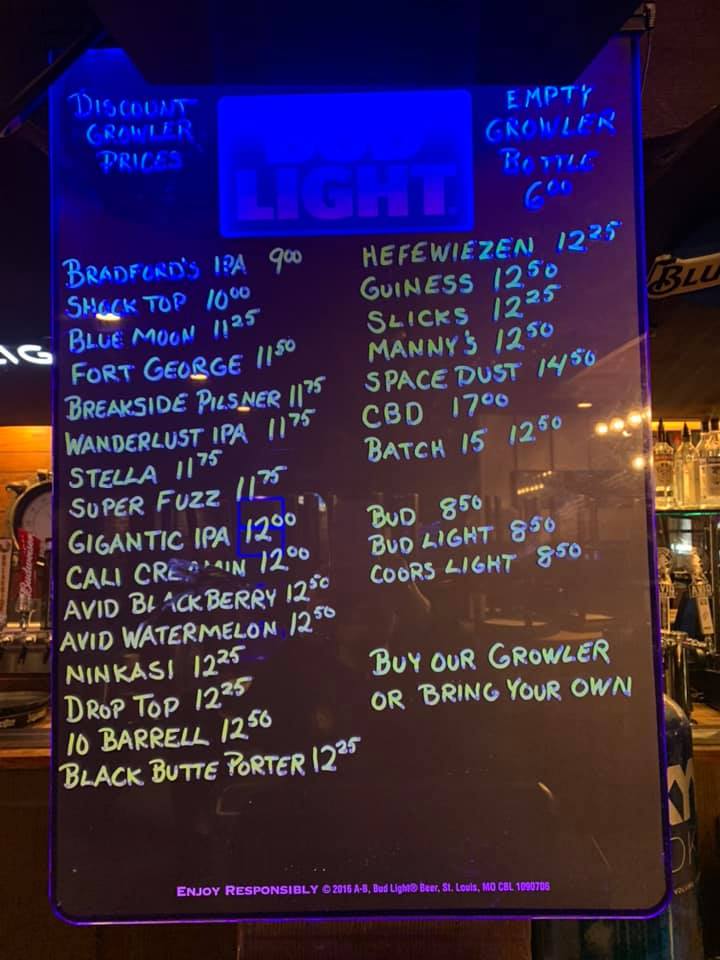 DISCOUNT
GROWLER
PRICES
BUD
LIGHT
EMPTY
GROWLER
BOTTLE
6⁰⁰
BRADFORD'S IPA 9⁰⁰
SHOCK TOP 10⁰⁰
BLUE MOON 11²⁵
FORT GEORGE 11⁵⁰
BREAKSIDE PILSNER 11⁷⁵
WANDERLUST IPA 11⁷⁵
STELLA 11⁷⁵
SUPER FUZZ 11⁷⁵
GIGANTIC IPA 12⁰⁰
CALI 12⁰⁰
AVID BLACKBERRY 12⁵⁰
AVID WATERMELON 12⁵⁰
NINKASI 12²⁵
DROP TOP 12²⁵
10 BARRELL 12⁵⁰
BLACK BUTTE PORTER 12²⁵
HEFEWIEZEN 12²⁵
GUINESS 12⁵⁰
SLICKS 12²⁵
MANNY'S 12⁵⁰
SPACE DUST 14⁵⁰
CBD 17⁰⁰
BATCH 15 12⁵⁰
BUD 8⁵⁰
BUD LIGHT 8⁵⁰
COORS LIGHT 8⁵⁰
BUY OUR GROWLER
OR BRING YOUR OWN
ENJOY RESPONSIBLY © 2016 A-B, Bud Light® Beer, St. Louis, MO CBL 1090706
BLU